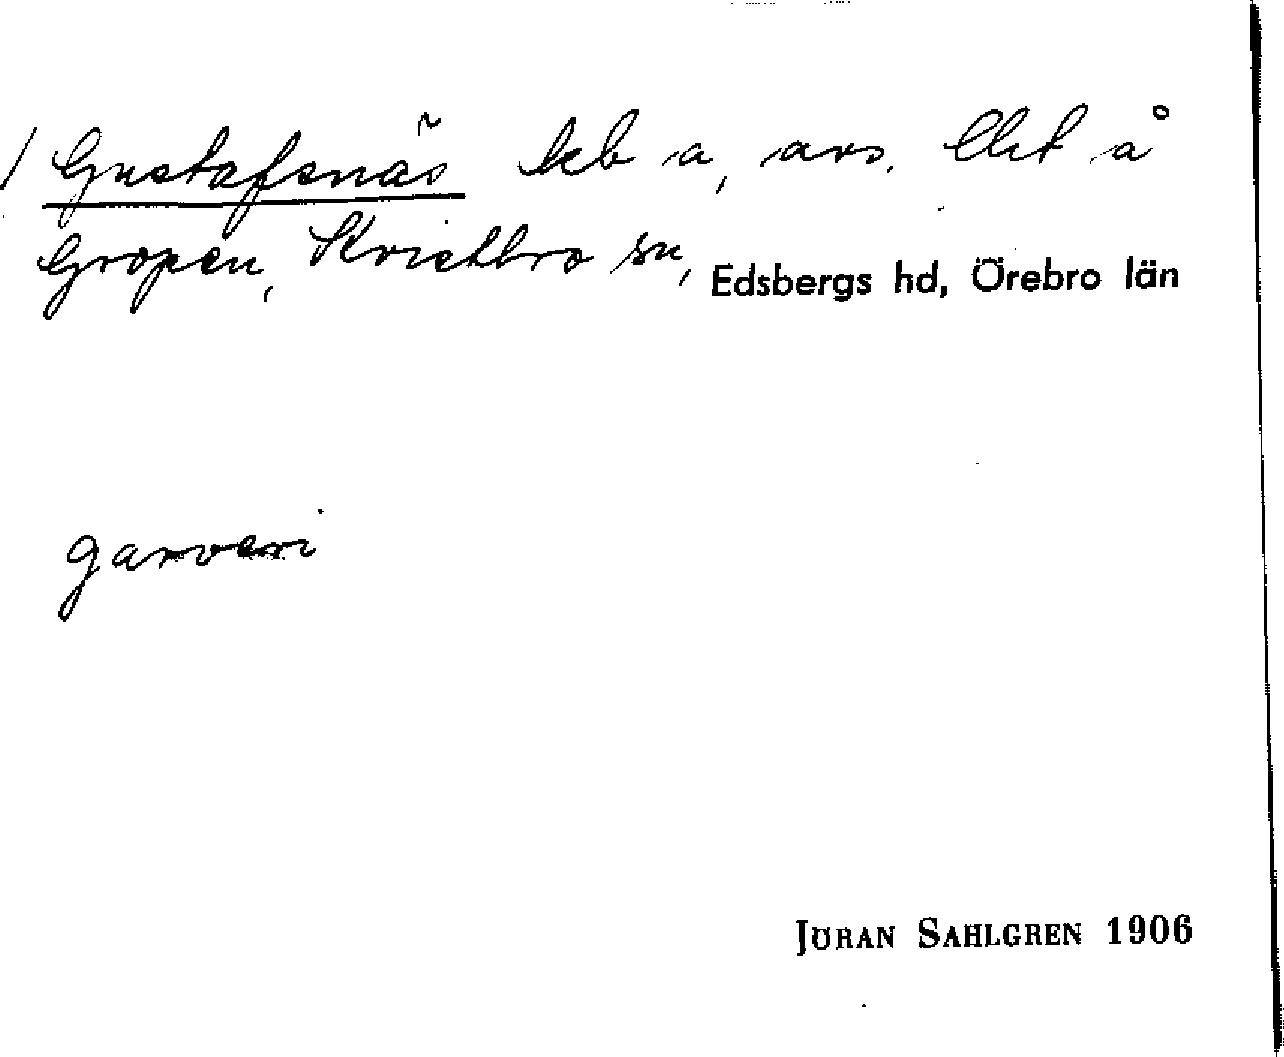 / Gustafsnäs kb a, avs. lht å
Gropen, Kvistbro sn, Edsbergs hd, Örebro län
garveri
JÖRAN SAHLGREN 1906